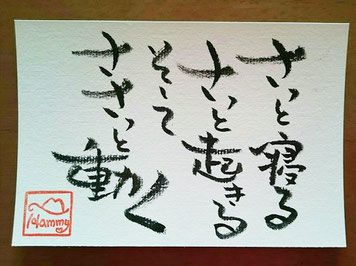 さっと寝る
さっと起きる
そして
ささっと動く